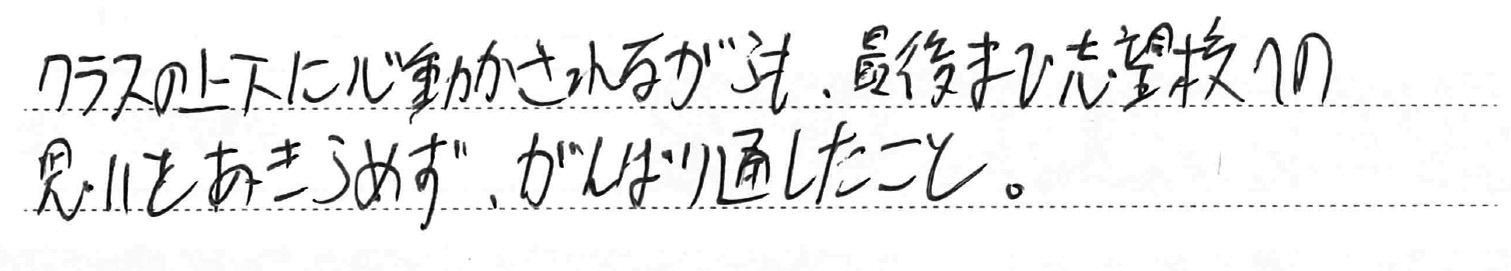 クラスの上下に心動かされるがらも、最後まで志望校への
思いをあきらめず、がんばり通したこと。